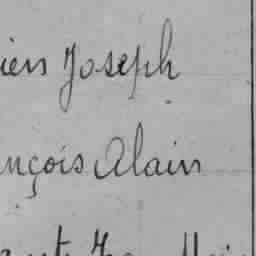 ien Joseph
nçois Alain